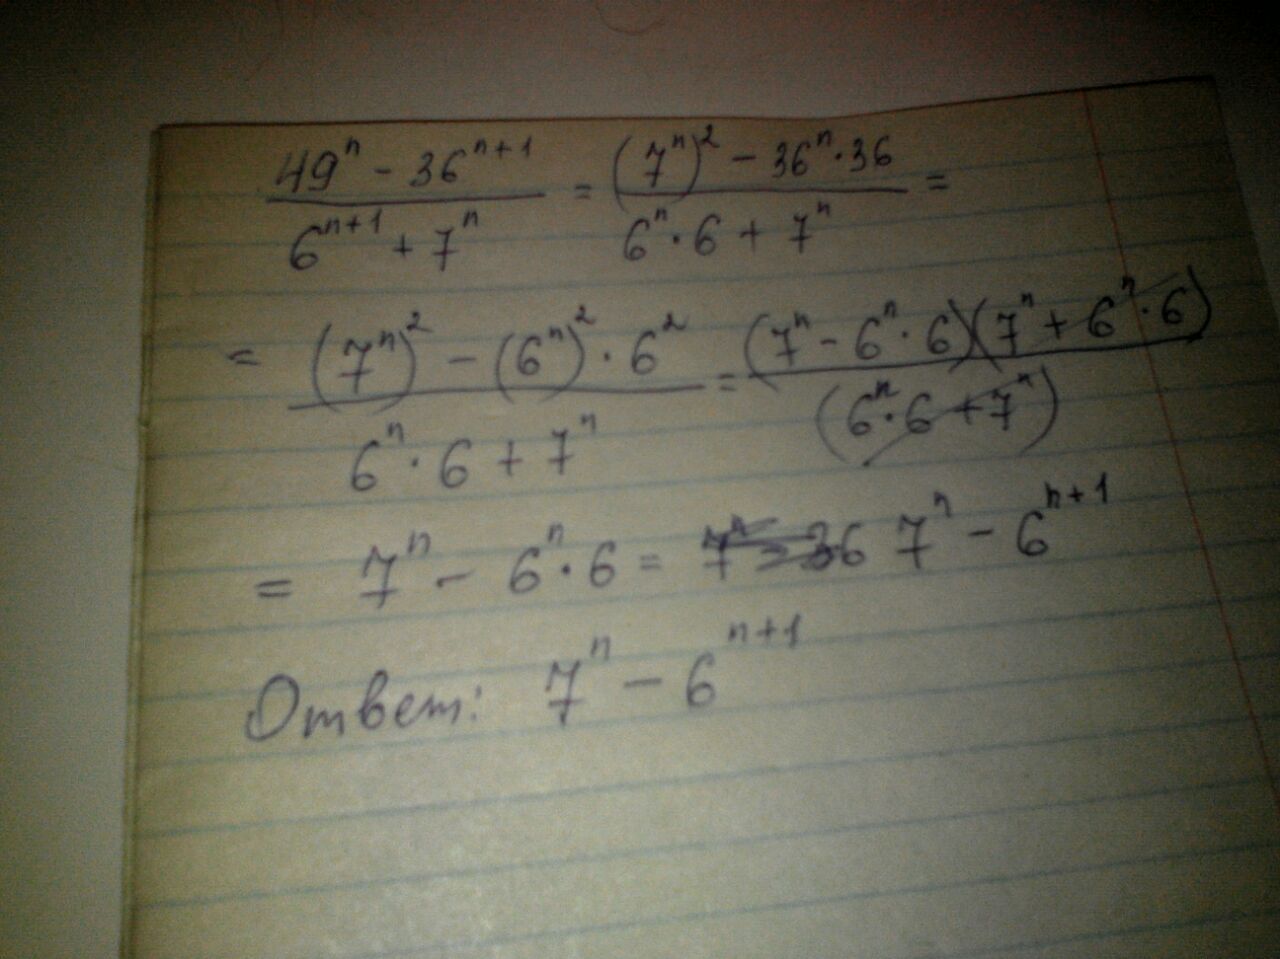 (49ⁿ - 36ⁿ⁺¹)/(6ⁿ⁺¹ + 7ⁿ) = ((7ⁿ)² - 36ⁿ·36)/(6ⁿ·6 + 7ⁿ) =
= ((7ⁿ)² - (6ⁿ)²·6²)/(6ⁿ·6 + 7ⁿ) = (7ⁿ - 6ⁿ·6)(7ⁿ + 6ⁿ·6)/(6ⁿ·6 + 7ⁿ)
= 7ⁿ - 6ⁿ·6 = 7ⁿ - 6ⁿ⁺¹
Ответ: 7ⁿ - 6ⁿ⁺¹